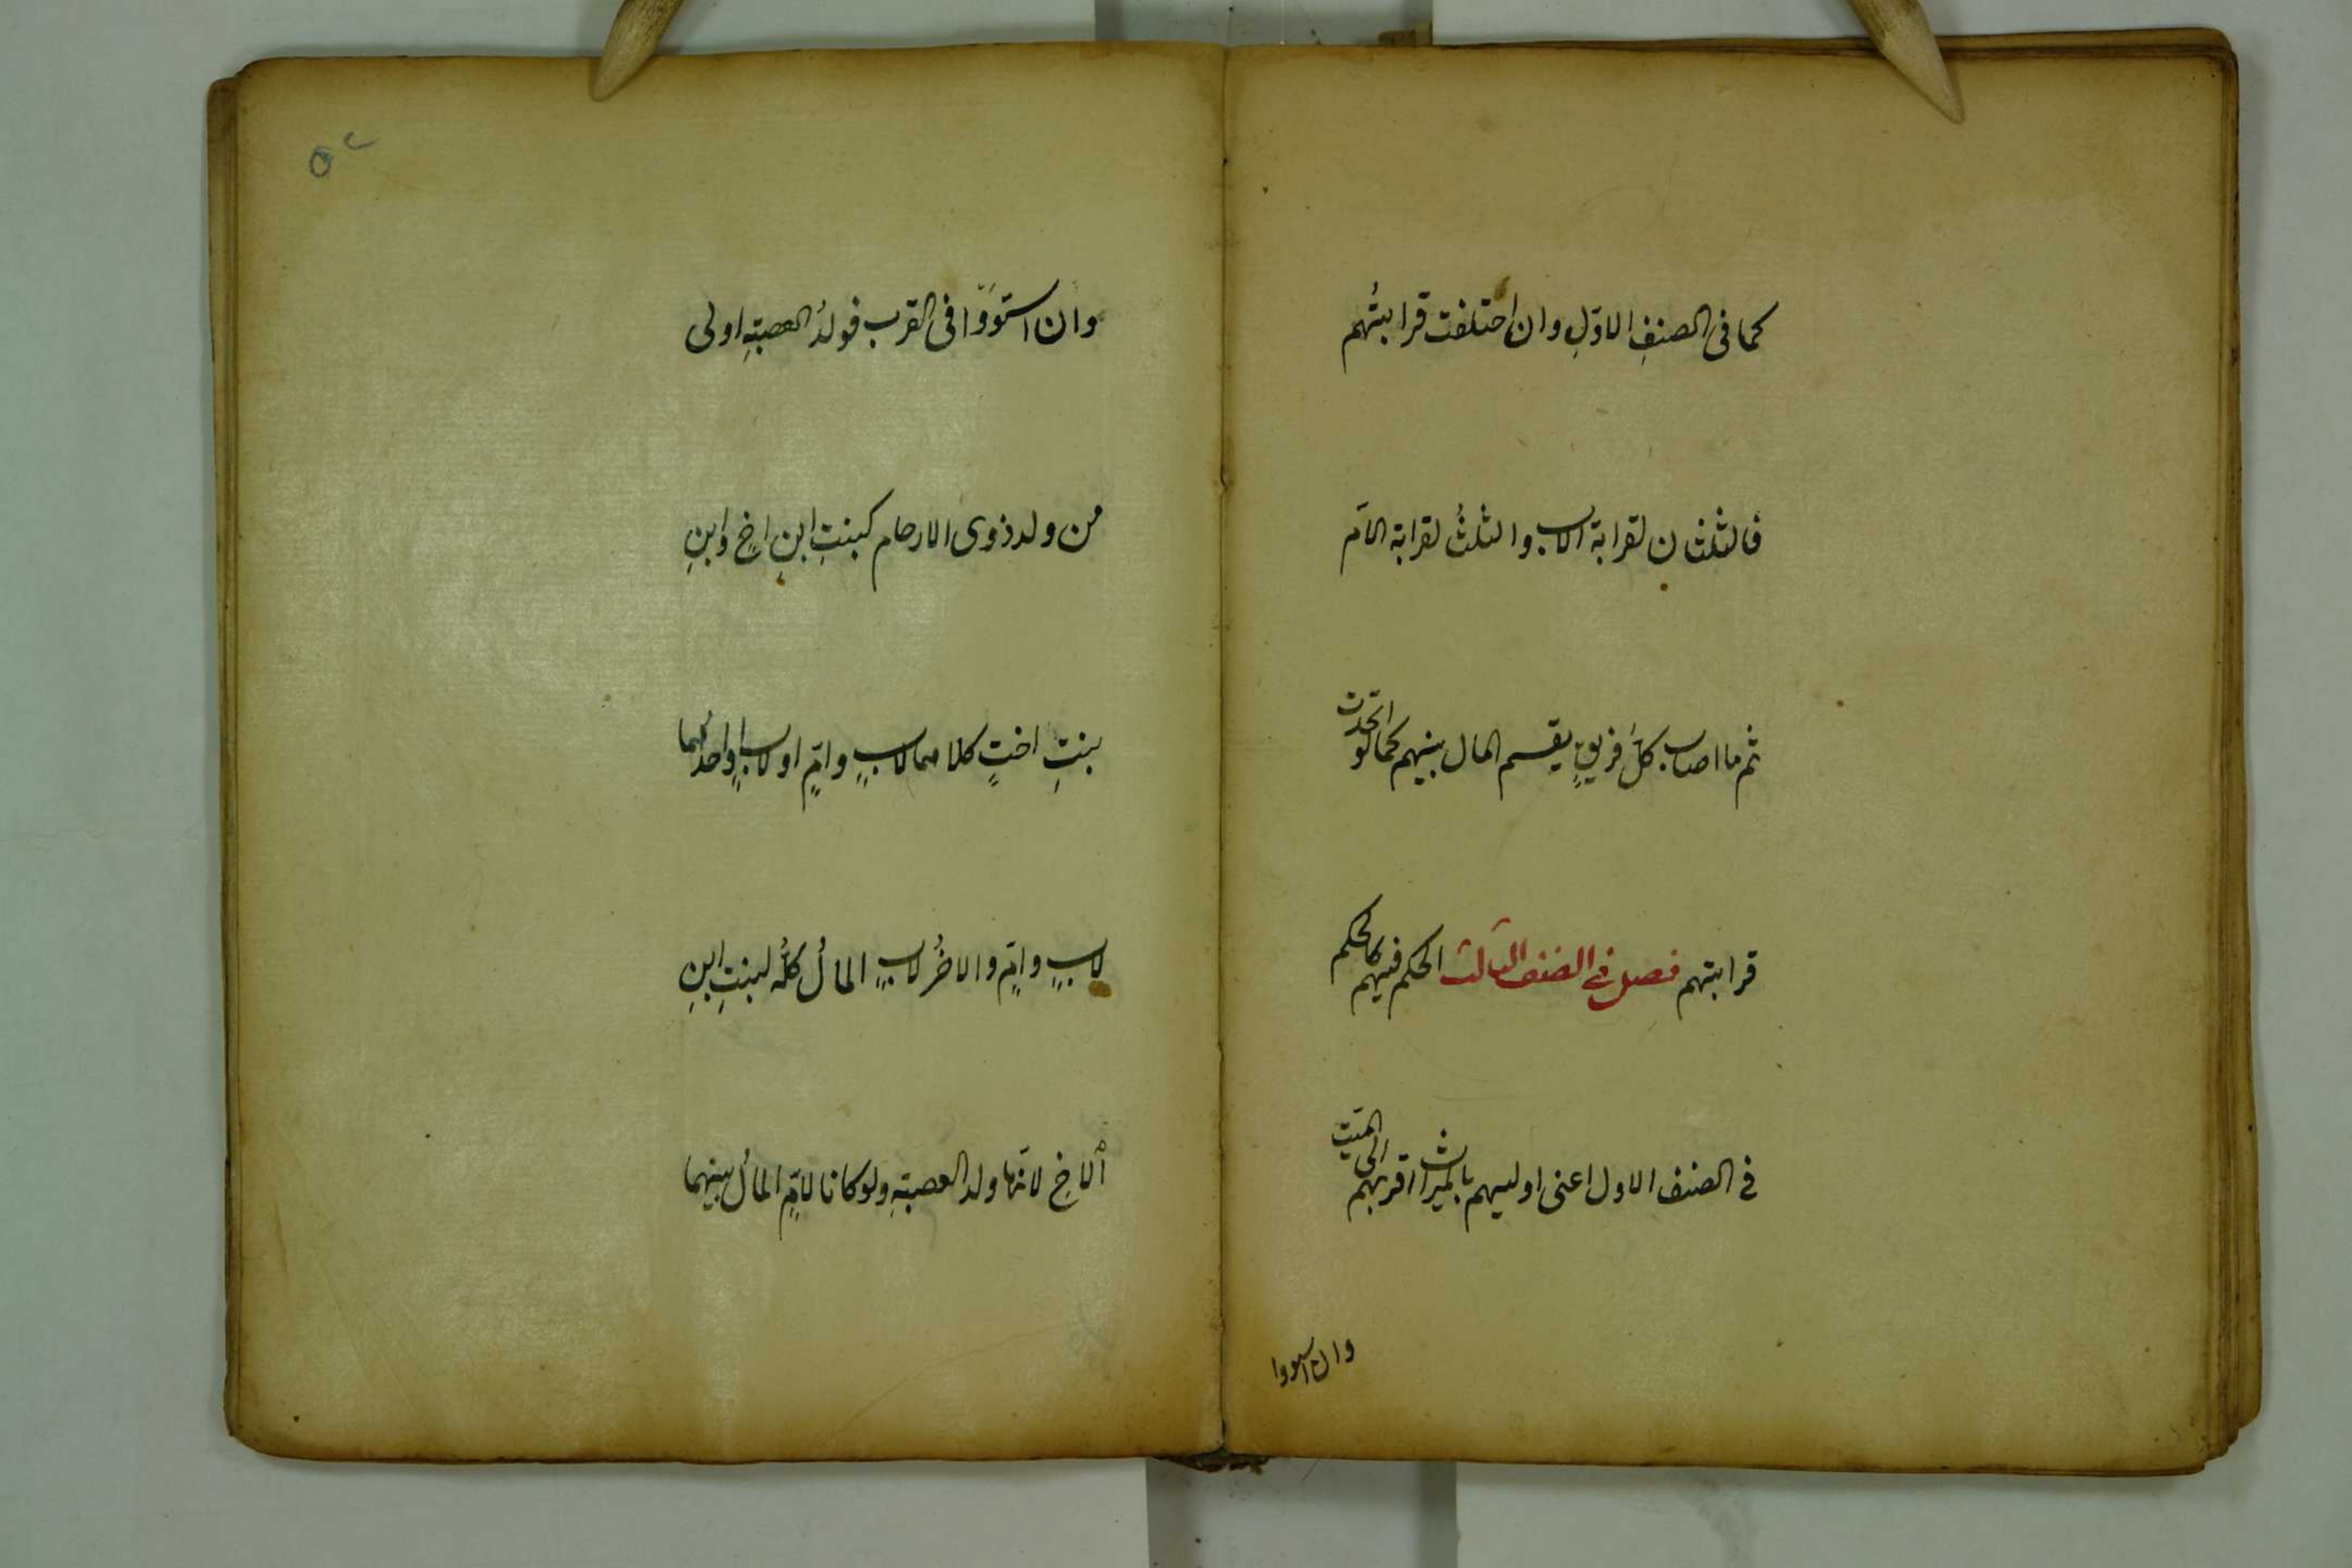 كما فى الصنفِ الاوّلِ وان اختلفت قرابتُهم
فالثلثان لقرابة الاب والثلثُ لقرابة الامّ
ثم ما اصاب كلَّ فريقٍ يقسم المال بينهم كما لو اتّحدت
قرابتهم فصل فى الصنف الثالث الحكم فيهم كالحكم
فى الصنف الاول اعنى اوليهم بالميراث اقربهم الى الميّت
وان استووا
٥٢
وان استَوَوا فى القرب فولدُ العصبةِ اولى
من ولد ذوى الارحام كبنتِ ابنِ اخٍ وابنِ
بنتِ اختٍ كلاهما لابٍ وامٍّ او لابٍ واحدُهما
لابٍ وامٍّ والاخرُ لابٍ المالُ كلُّه لبنتِ ابنِ
الاخِ لانّها ولد العصبةِ ولو كانا لامٍّ المالُ بينهما